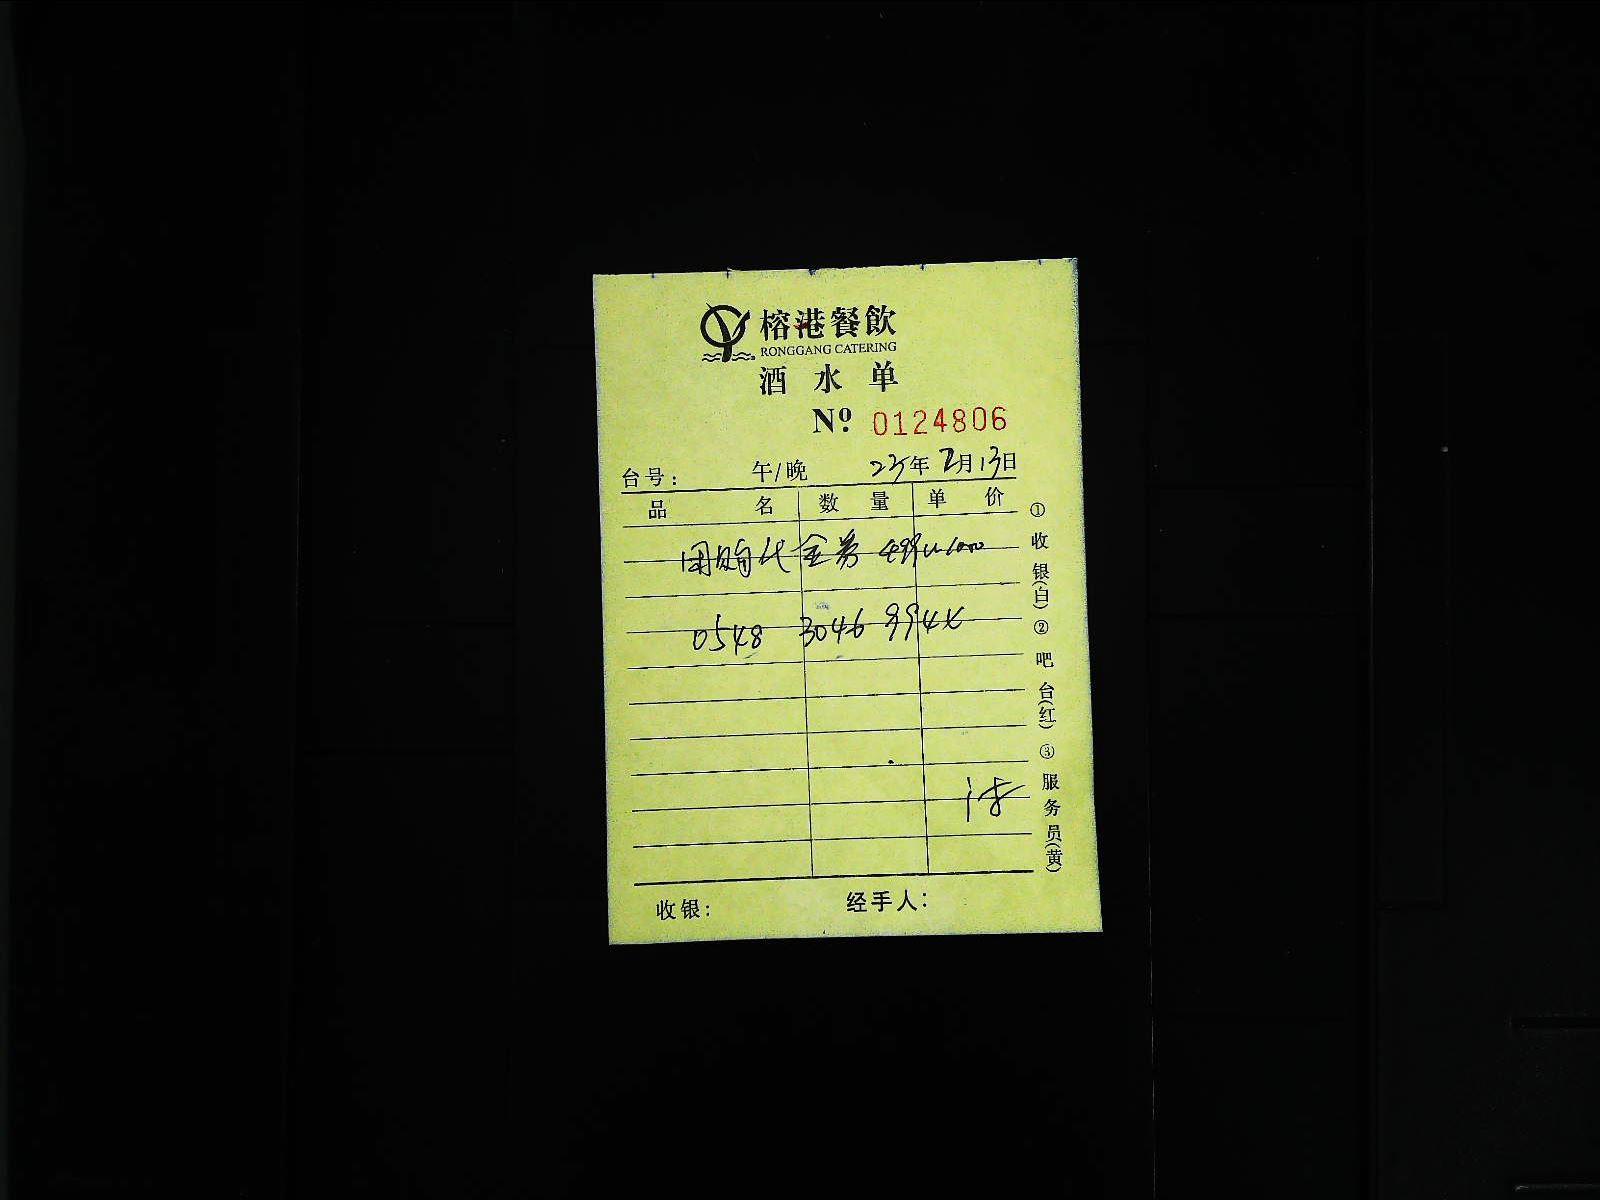 榕港餐飲
RONGGANG CATERING
酒水单
Nº 0124806
台号: 午/晚 25年2月13日
品名 数量 单价
团购代金券 499
0548 3046 994X
收银: 经手人:
①收银(白)②吧台(红)③服务员(黄)